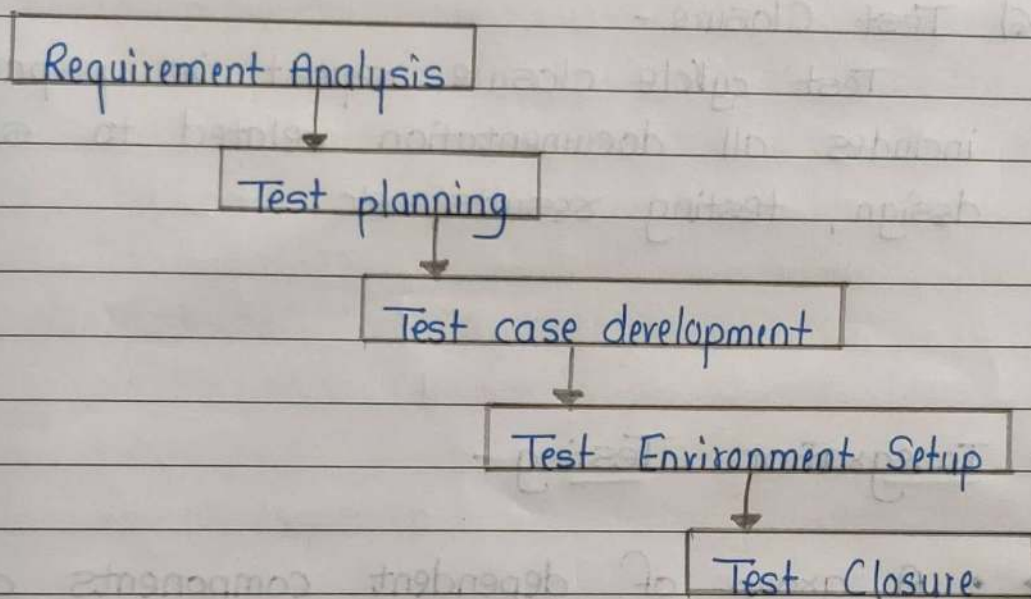 Requirement Analysis
Test planning
Test case development
Test Environment Setup
Test Closure.